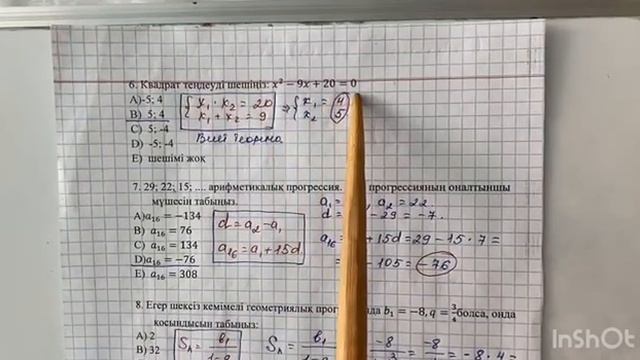 6. Квадрат теңдеуді шешіңіз: x² − 9x + 20 = 0
A) -5; 4
B) 5; 4
C) 5; -4
D) -5; -4
E) шешімі жоқ
{ x₁ · x₂ = 20
x₁ + x₂ = 9
⇒ { x₁ = 4
x₂ 5
Виет теорема
7. 29; 22; 15; .... арифметикалық прогрессия. прогрессияның оналтыншы
мүшесін табыңыз.
A) a₁₆ = −134
B) a₁₆ = 76
C) a₁₆ = 134
D) a₁₆ = −76
E) a₁₆ = 308
d = a₂ − a₁
a₁₆ = a₁ + 15d
a₁ = , a₂ = 22
d = − 29 = −7.
a₁₆ = + 15d = 29 − 15 · 7 =
− 105 = −76
8. Егер шексіз кемімелі геометриялық b₁ = −8, q = 3/4 болса, онда
қосындысын табыңыз:
A) 2
B) 32
b₁
b₁
= −8
= −8
= −8 · 4 =
InShOt